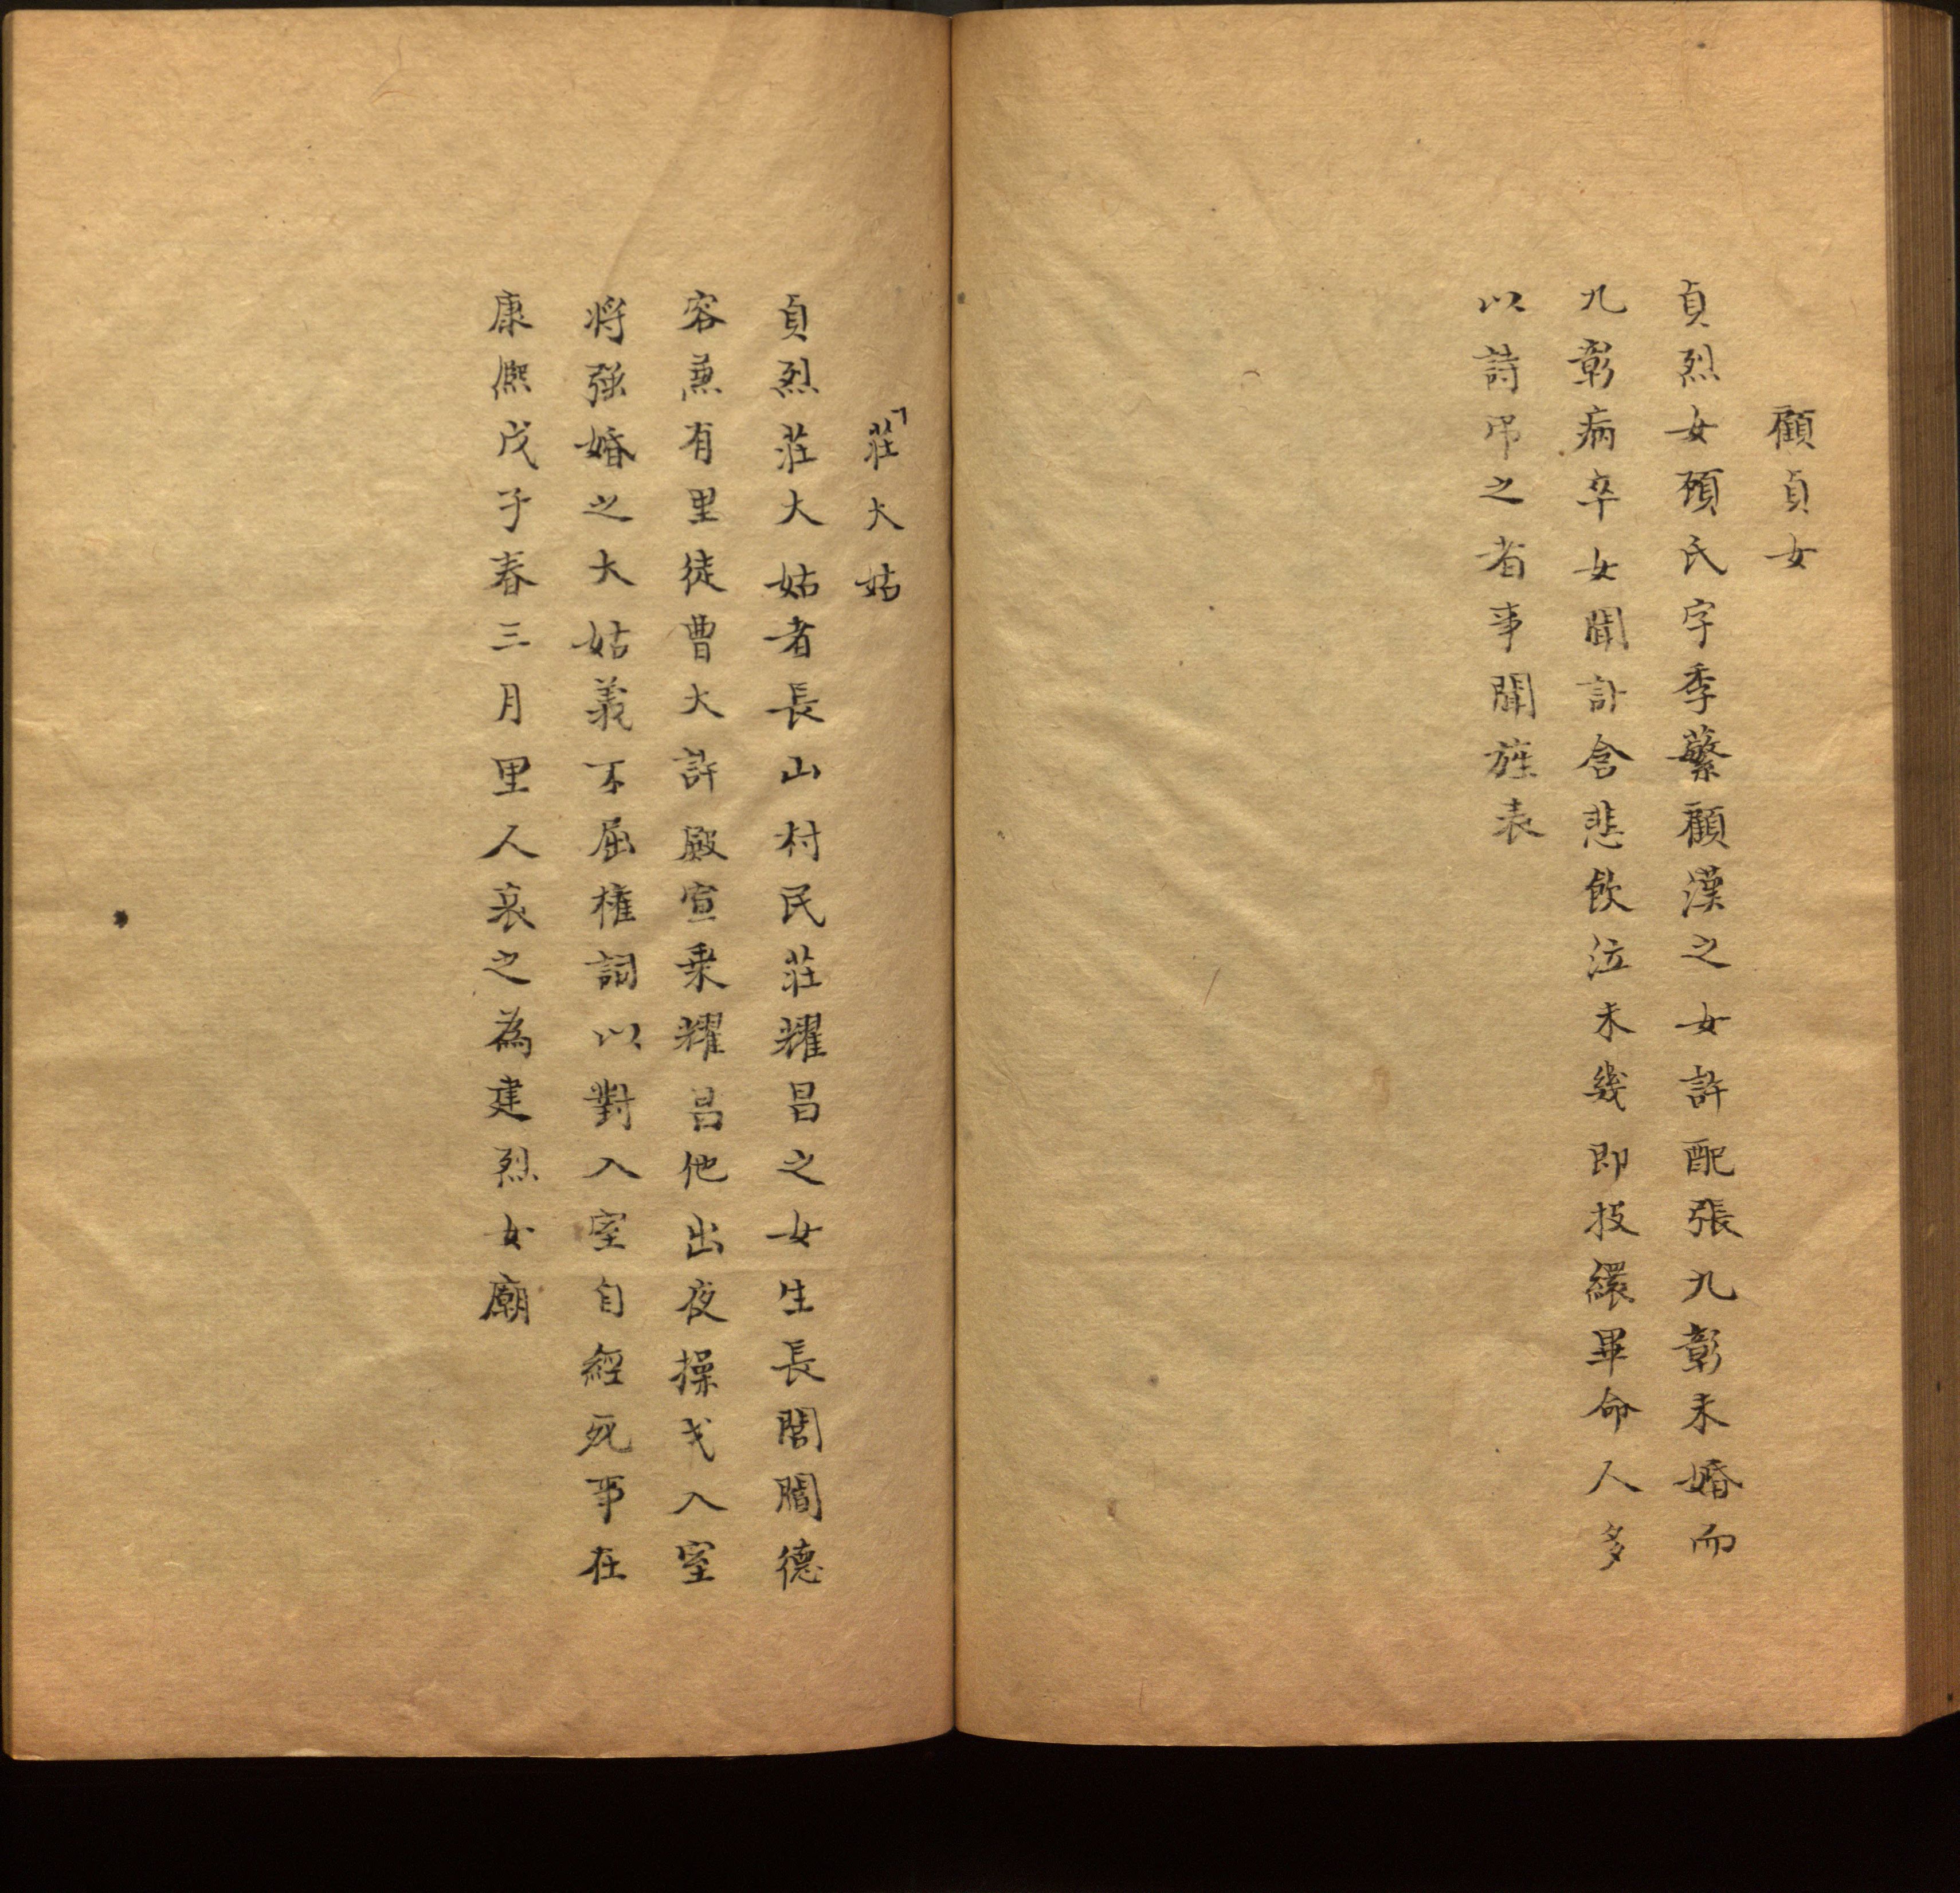 顧貞女
貞烈女顧氏字季蘩顧漢之女許配張九彰未婚而
九彰病卒女聞訃含悲飲泣未幾即投繯畢命人多
以詩弔之者事聞旌表
莊大姑
貞烈莊大姑者長山村民莊耀昌之女生長閭閻德
容兼有里徒曹大許殿宣乘耀昌他出夜操戈入室
将強婚之大姑義不屈權詞以對入室自經死事在
康熙戊子春三月里人哀之為建烈女廟